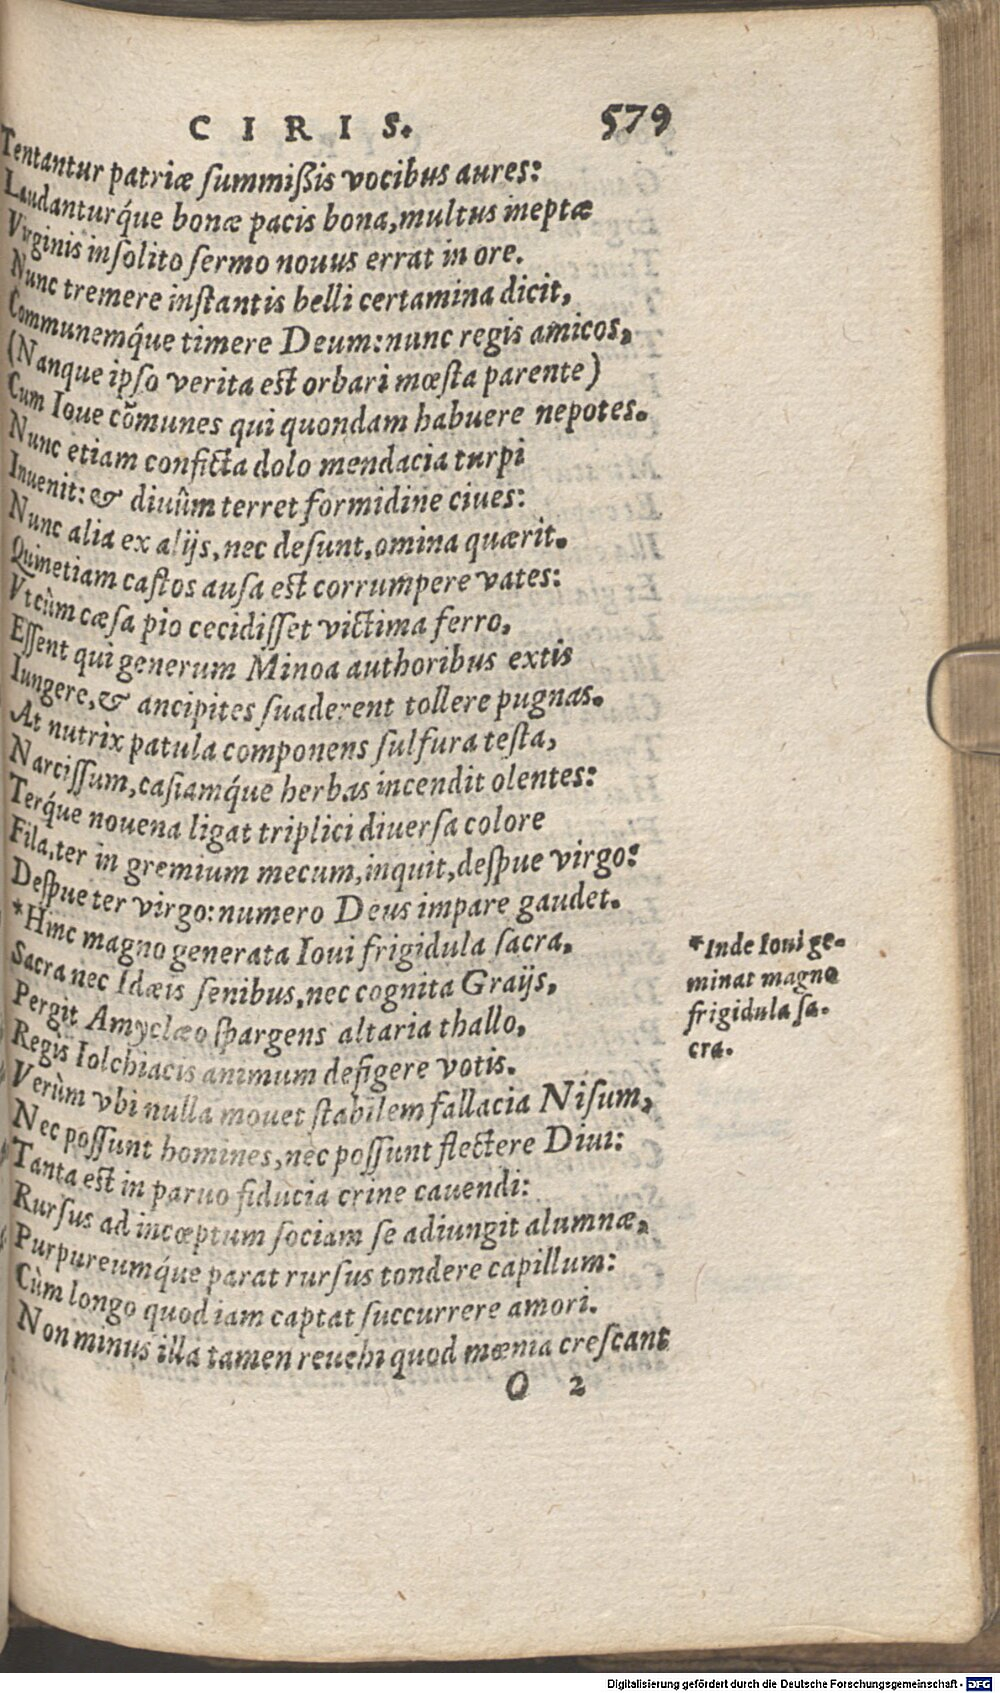 CIRIS. 579
Tentantur patriæ summißis vocibus aures:
Laudanturq́ue bonæ pacis bona, multus ineptæ
Virginis insolito sermo nouus errat in ore.
Nunc tremere instantis belli certamina dicit,
Communemq́ue timere Deum: nunc regis amicos,
(Nanque ipso verita est orbari mœsta parente)
Cum Ioue cõmunes qui quondam habuere nepotes.
Nunc etiam conficta dolo mendacia turpi
Inuenit: & diuûm terret formidine ciues:
Nunc alia ex alijs, nec desunt, omina quærit.
Quinetiam castos ausa est corrumpere vates:
Vt cùm cæsa pio cecidisset victima ferro,
Essent qui generum Minoa authoribus extis
Iungere, & ancipites suaderent tollere pugnas.
At nutrix patula componens sulfura testa,
Narcissum, casiamq́ue herbas incendit olentes:
Terq́ue nouena ligat triplici diuersa colore
Fila, ter in gremium mecum, inquit, despue virgo:
Despue ter virgo: numero Deus impare gaudet.
*Hinc magno generata Ioui frigidula sacra,
Sacra nec Idæis senibus, nec cognita Graijs,
Pergit Amyclæo spargens altaria thallo,
Regis Iolchiacis animum defigere votis.
Verùm vbi nulla mouet stabilem fallacia Nisum,
Nec possunt homines, nec possunt flectere Diui:
Tanta est in paruo fiducia crine cauendi:
Rursus ad incœptum sociam se adiungit alumnæ,
Purpureumq́ue parat rursus tondere capillum:
Cùm longo quod iam captat succurrere amori.
Non minus illa tamen reuehi quod mœnia crescant
O 2
*Inde Ioui ge-
minat magno
frigidula sa-
cra.
Digitalisierung gefördert durch die Deutsche Forschungsgemeinschaft - DFG